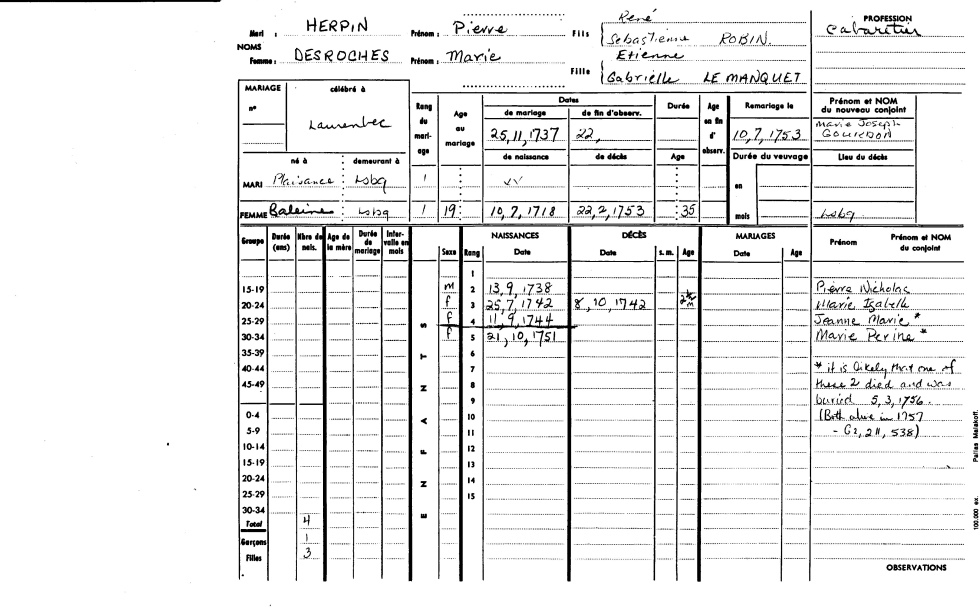 Mari : HERPIN Prénom : Pierre Fils René PROFESSION
Sebastienne ROBIN. Cabaretier
NOMS
Femme : DESROCHES Prénom : Marie Fille Etienne
Gabrielle LE MANQUET
MARIAGE célébré à Rang du mariage Age au mariage Dates Durée Age en fin d'observ. Remariage le Prénom et NOM du nouveau conjoint
n° de mariage de fin d'observ.
Laurenbec 25, 11, 1737 22, 10, 7, 1753 Marie Joseph
GOURDON
né à demeurant à de naissance de décès Age Durée du veuvage Lieu du décès
MARI Plaisance Lsbg 1 en
FEMME Baleine Lsbg 1 19 10, 7, 1718 22, 2, 1753 35 mois Lsbg
Groupe Durée (ans) Nbre de nais. Age de la mère Durée de mariage Intervalle en mois Sexe Rang NAISSANCES DÉCÈS MARIAGES Prénom Prénom et NOM du conjoint
Date Date s. m. Age Date Age
ENFANTS
1
15-19 m 2 13, 9, 1738 Pierre Nicholas
20-24 f 3 25, 7, 1742 8, 10, 1742 2½ m Marie Izabelle
25-29 f 4 11, 9, 1744 Jeanne Marie *
30-34 f 5 21, 10, 1751 Marie Perine *
35-39 6
40-44 7 * it is likely that one of
45-49 8 these 2 died and was
9 buried 5, 3, 1756.
0-4 10 (Both alive in 1757
5-9 11 - G2, 211, 538)
10-14 12
15-19 13
20-24 14
25-29 15
30-34
Total 4
Garçons 1
Filles 3
OBSERVATIONS
100.000 ex. Pallas Malakoff.